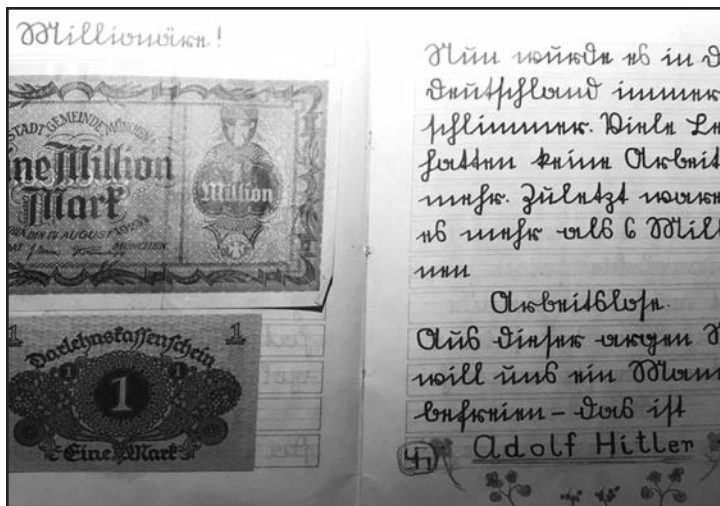 Millionäre!
STADTGEMEINDE MÜNCHEN
ine Million
Mark
AUGUST 1923
MÜNCHEN
1
Million
1
1
Darlehnskassenschein
1
1
1
Eine Mark
Nun wurde es in
Deutschland immer
schlimmer. Viele
hatten keine Arbeit
mehr. Zuletzt
es mehr als 6
nen
Arbeitslose.
Aus dieser argen
will uns ein
befreien – das ist
Adolf Hitler